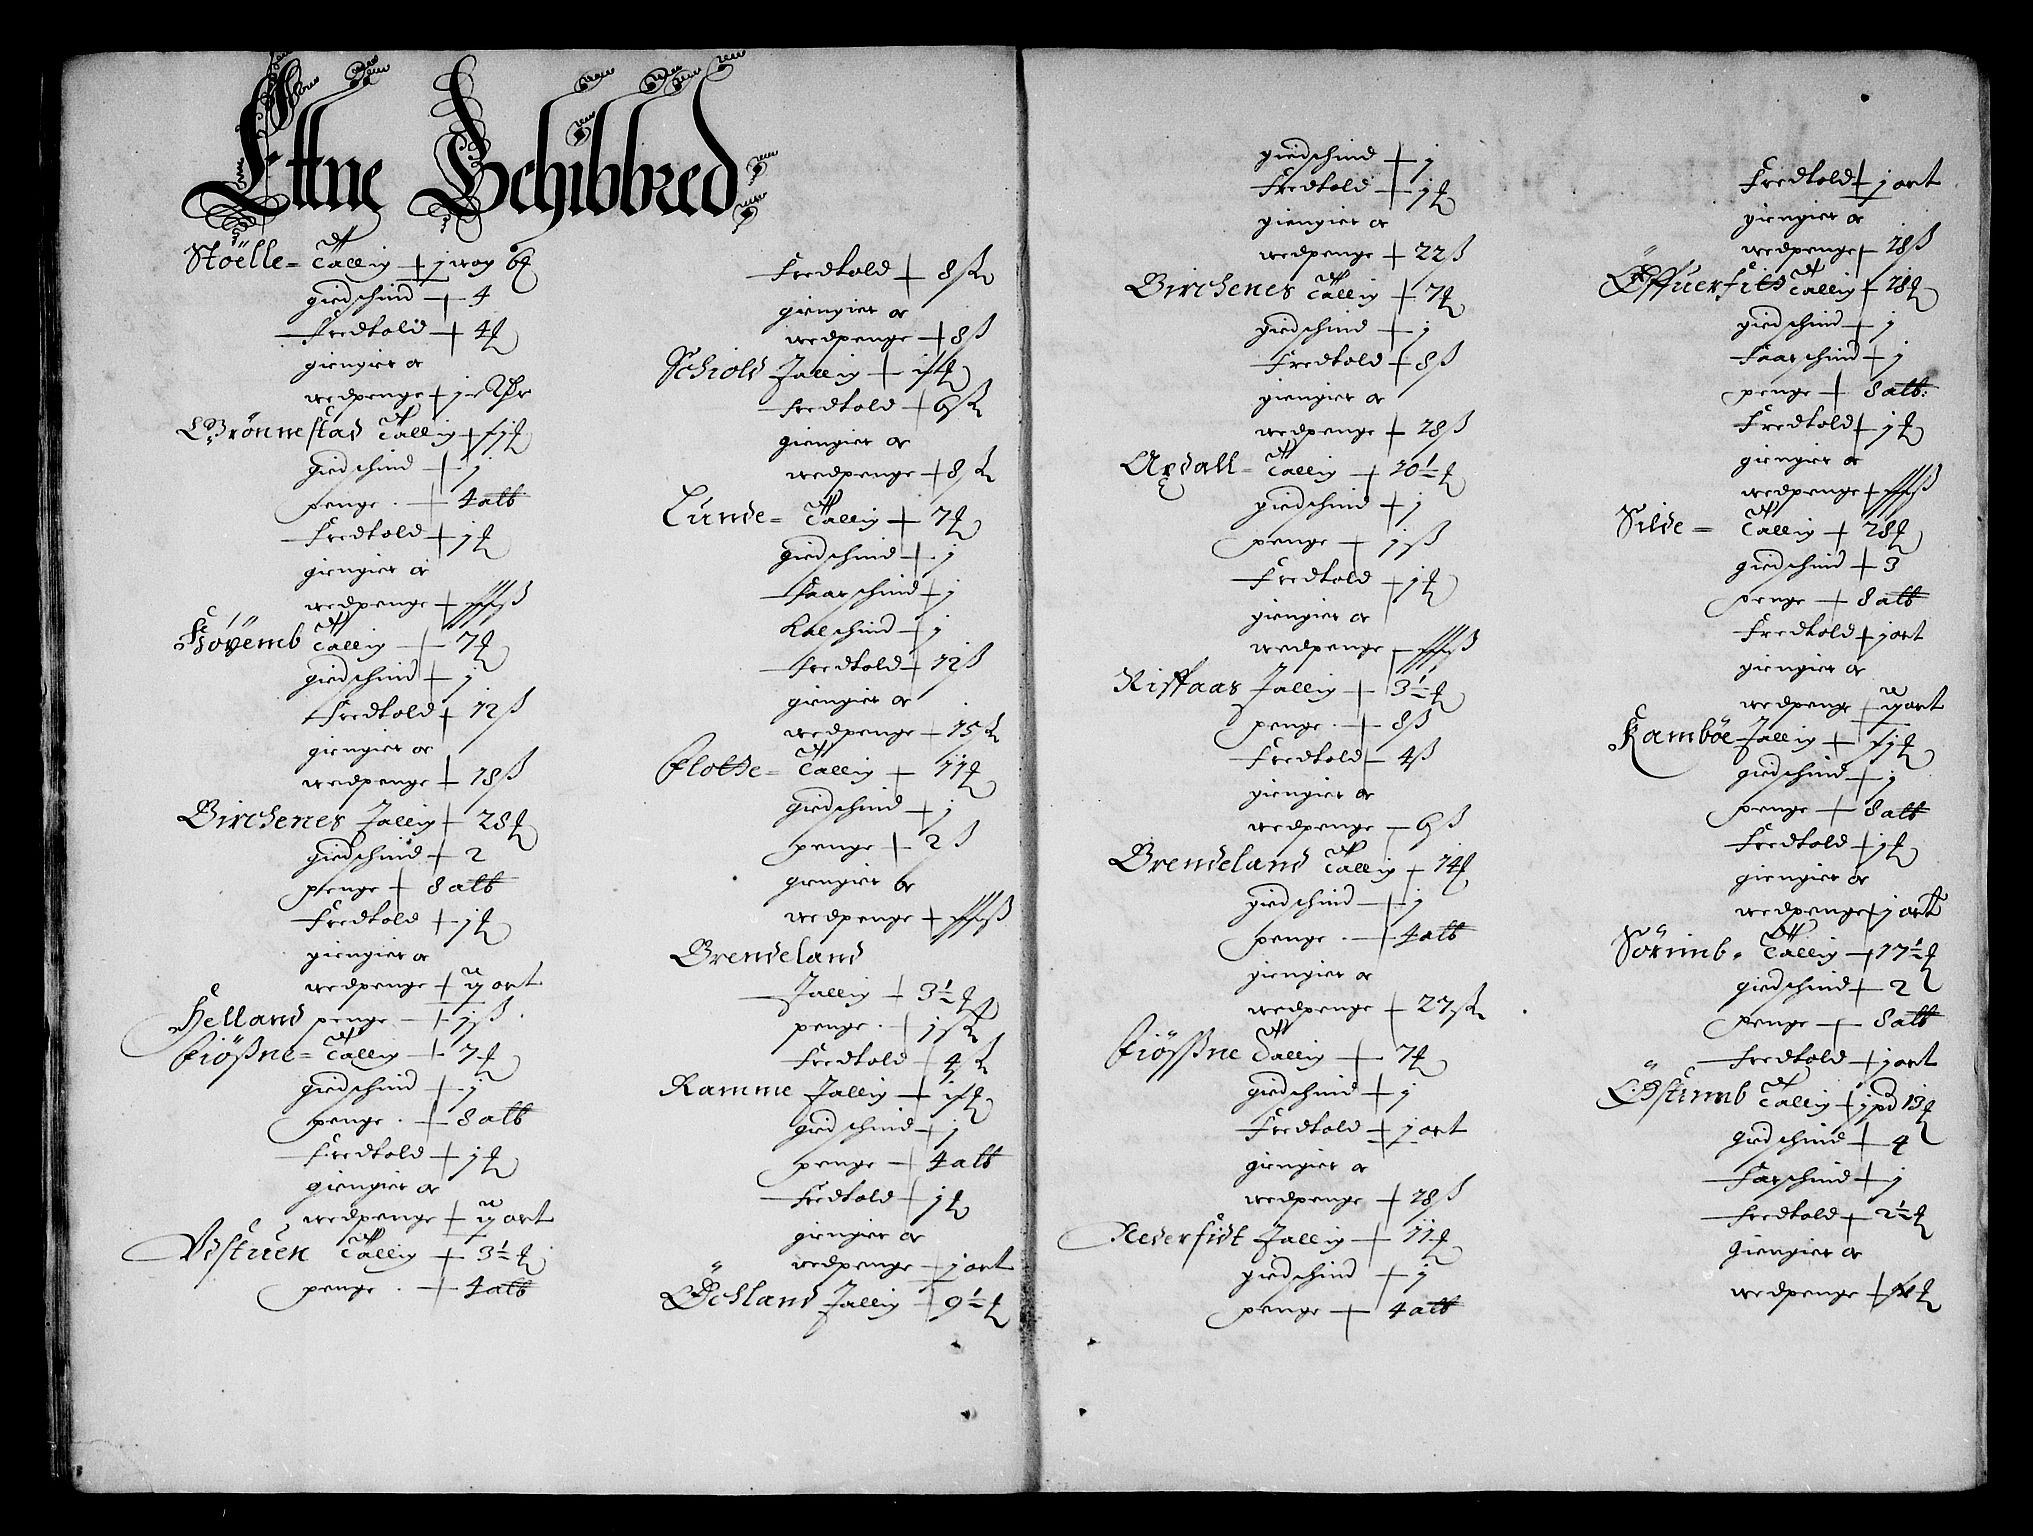 Ettne Schibbred
Stöelle = Tallig + j wog 6
giedschind + 4
Fredtold + 4
giengier or
wedpenge + j
Grönnestad Tallig +
giedschind + j
penge . + 4 alb
Fredtold + j
giengier or
wedpenge + ß
Tallig + 7
giedschind + j
Fredtold + 12 ß
giengier or
wedpenge + 18 ß
Birchenes Tallig + 28
giedschind + 2
penge + 8 alb
Fredtold + j
giengier or
wedpenge + ij ort
Helland penge + j ß
Fiößne = Tallig + 7
giedschind + j
penge . + 8 alb
Fredtold + j
giengier or
wedpenge + ij ort
Tallig + 3½
penge . + 4 alb
Fredtold + 8 ß
giengier or
wedpenge + 8 ß
Schiold Tallig +
Fredtold + 6 ß
giengier or
wedpenge + 8 ß
Lunde = Tallig + 7
giedschind + j
Faarschind + j
Kalschind + j
Fredtold + 12 ß
giengier or
wedpenge + 15 ß
Flotde = Tallig + 11
giedschind + j
penge + 2 ß
giengier or
wedpenge + ß
Grendeland
Tallig + 3½
penge . + j ß
Fredtold + 4 ß
Ramme Tallig +
giedschind + j
penge + 4 alb
Fredtold + j
giengier or
wedpenge + j ort
Öchland Tallig + 9½
giedschind + j
Fredtold + j
giengier or
wedpenge + 22 ß
Birchenes Tallig + 7
giedschind + j
Fredtold + 8 ß
giengier or
wedpenge + 28 ß
Axdall = Tallig + 10½
giedschind + j
penge + j ß
Fredtold + j
giengier or
wedpenge + ß
Riffaas Tallig + 3½
penge . + 8 ß
Fredtold + 4 ß
giengier or
wedpenge + 6 ß
Grendeland Tallig + 14
giedschind + j
penge . + 4 alb
giengier or
wedpenge + 27 ß
Fiößne Tallig + 7
giedschind + j
Fredtold + j ort
giengier or
wedpenge + 18 ß
Nederfidt Tallig + 11
giedschind + j
penge + 4 alb
Fredtold + j ort
giengier or
wedpenge + 18 ß
Öffuerfidt Tallig + 18
giedschind + j
Faarschind + j
penge + 8 alb:
Fredtold + j
giengier or
wedpenge + ß
Silde = Tallig + 28
giedschind + 3
penge + 8 alb
Fredtold + j ort
giengier or
wedpenge + ij ort
Kamböe Tallig +
giedschind + j
penge + 8 alb
Fredtold + j
giengier or
wedpenge + j ort
Sörimb = Tallig + 17½
giedschind + 2
penge + 8 alb
Fredtold + j ort
Östimb Tallig + j pd 13
giedschind + 4
Farschind + j
Fredtold + 2½
giengier or
wedpenge +